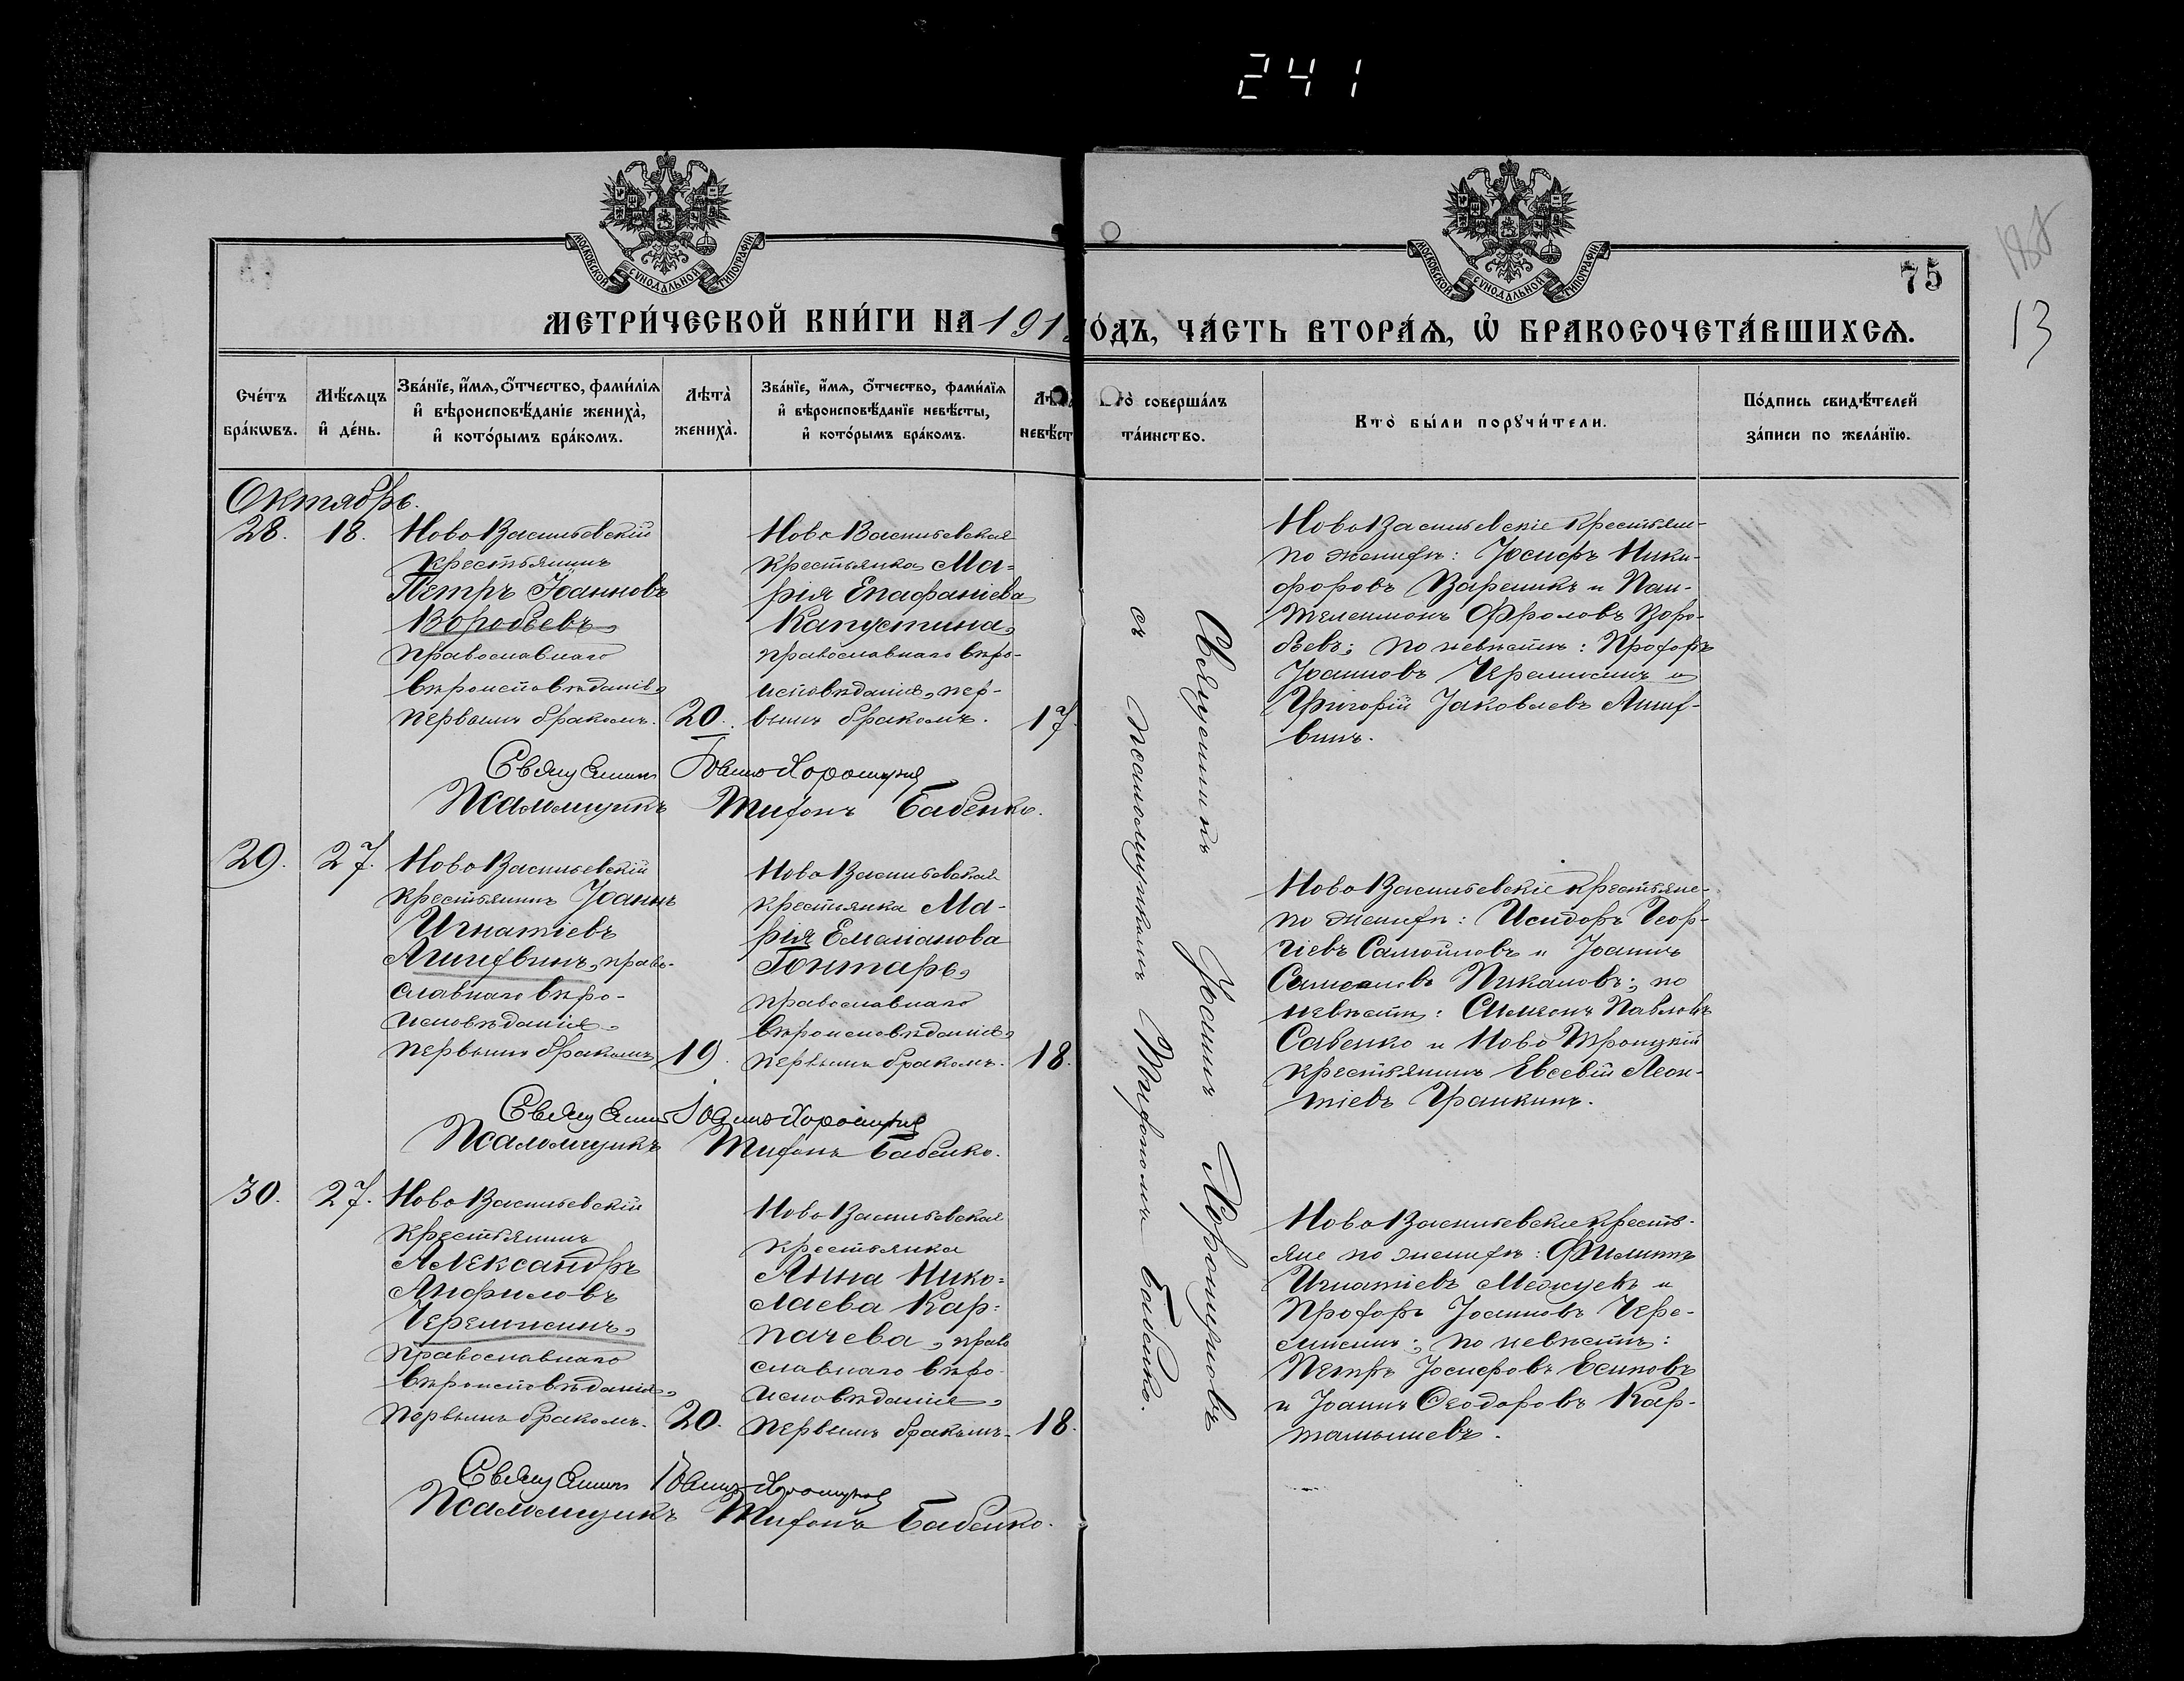 241
МОСКОВСКОЙ СѴНОДАЛЬНОЙ ТИПОГРАФІИ
МОСКОВСКОЙ СѴНОДАЛЬНОЙ ТИПОГРАФІИ
75
13
МЕТРИ́ЧЕСКОЙ КНИ́ГИ НА 191
ОДЪ, ЧА́СТЬ ВТОРА́Ѧ, Ѡ҆ БРАКОСОЧЕТА́ВШИХСѦ.
Сче́тъ бра́кѡвъ.
Мѣ́сѧцъ и҆ де́нь.
Зва́нїе, и҆́мѧ, ѻ҆́тчество, фами́лїѧ и҆ вѣроисповѣ́данїе жениха̀, и҆ кото́рымъ бра́комъ.
Лѣта̀ жениха̀.
Зва́нїе, и҆́мѧ, ѻ҆́тчество, фами́лїѧ и҆ вѣроисповѣ́данїе невѣ́сты, и҆ кото́рымъ бра́комъ.
невѣ́ст
то̀ соверша́лъ
та́инство.
Кто̀ бы́ли порꙋчи́тели.
По́дпись свидѣ́телей
за́писи по жела́нїю.
Октябрь.
28.
18.
Ново Васильевскій
крестьянинъ
Петръ Іоанновъ
Воробьевъ,
православнаго
вѣроисповѣданія,
первымъ бракомъ.
20.
Ново Васильевская
крестьянка Ма=
рія Епафаніева
Капустина,
православнаго вѣро-
исповѣданія, пер-
вымъ бракомъ.
17.
Ново Васильевскіе крестьяне
по женихѣ: Іосифъ Ники-
форовъ Вареникъ и Пан-
телеимонъ Фроловъ Воро-
бьевъ; по невѣстѣ: Прохоръ
Іоанновъ Черемисинъ и
Григорій Іаковлевъ Лих-
винъ.
Священникъ Іоаннъ Хорошуновъ
Псаломщикъ Тихонъ Бабенко.
29.
27.
Ново Васильевскій
крестьянинъ Іоаннъ
Игнатіевъ
православнаго вѣро-
исповѣданія,
первымъ бракомъ
19.
Ново Васильевская
крестьянка Ма-
рія Емеліанова
Гонтарь,
православнаго
вѣроисповѣданія,
первымъ бракомъ.
18.
Ново Васильевскіе крестьяне-
по женихѣ: Исидоръ Геор-
гіевъ Самойловъ и Іоаннъ
Пикаловъ; по
невѣстѣ: Симеонъ Павловъ
Савенко и Ново Троицкій
крестьянинъ Евсевій Леон-
тіевъ Гранкинъ.
Священникъ Іоаннъ Хорошуновъ
Псаломщикъ Тихонъ Бабенко.
30.
27.
Ново Васильевскій
крестьянинъ
Александръ
Анфиловъ
Черемисинъ,
православнаго
вѣроисповѣданія,
первымъ бракомъ.
20.
Ново Васильевская
крестьянка
Анна Нико=
лаева Кар=
пачева, право
славнаго вѣро-
исповѣданія,
первымъ бракомъ-
18.
Ново Васильевские кресть-
яне по женихѣ: Филиппъ
Игнатіевъ и
Прохоръ Іоанновъ Чере-
мисинъ; по невѣстѣ:
Петръ Іосифовъ Есиповъ
и Іоаннъ Ѳеодоровъ Кар-
тамышевъ.
Священникъ Іоаннъ Хорошуновъ
Псаломщикъ Тихонъ Бабенко.
Священникъ Іоаннъ Хорошуновъ
съ псаломщикомъ Тихономъ Бабенко.